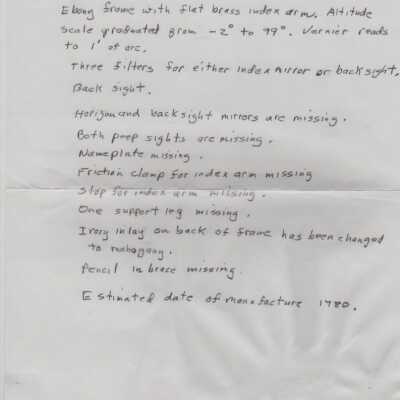 Ebony frame with flat brass index arm. Altitude
scale graduated from -2° to 99°. Vernier reads
to 1' of arc.
Three filters for either index mirror or back sight.
Back sight.
Horizon and back sight mirrors are missing.
Both peep sights are missing.
Nameplate missing.
Friction clamp for index arm missing
Stop for index arm missing.
One support leg missing.
Ivory inlay on back of frame has been changed
to mahogany.
Pencil in brace missing.
Estimated date of manufacture 1780.